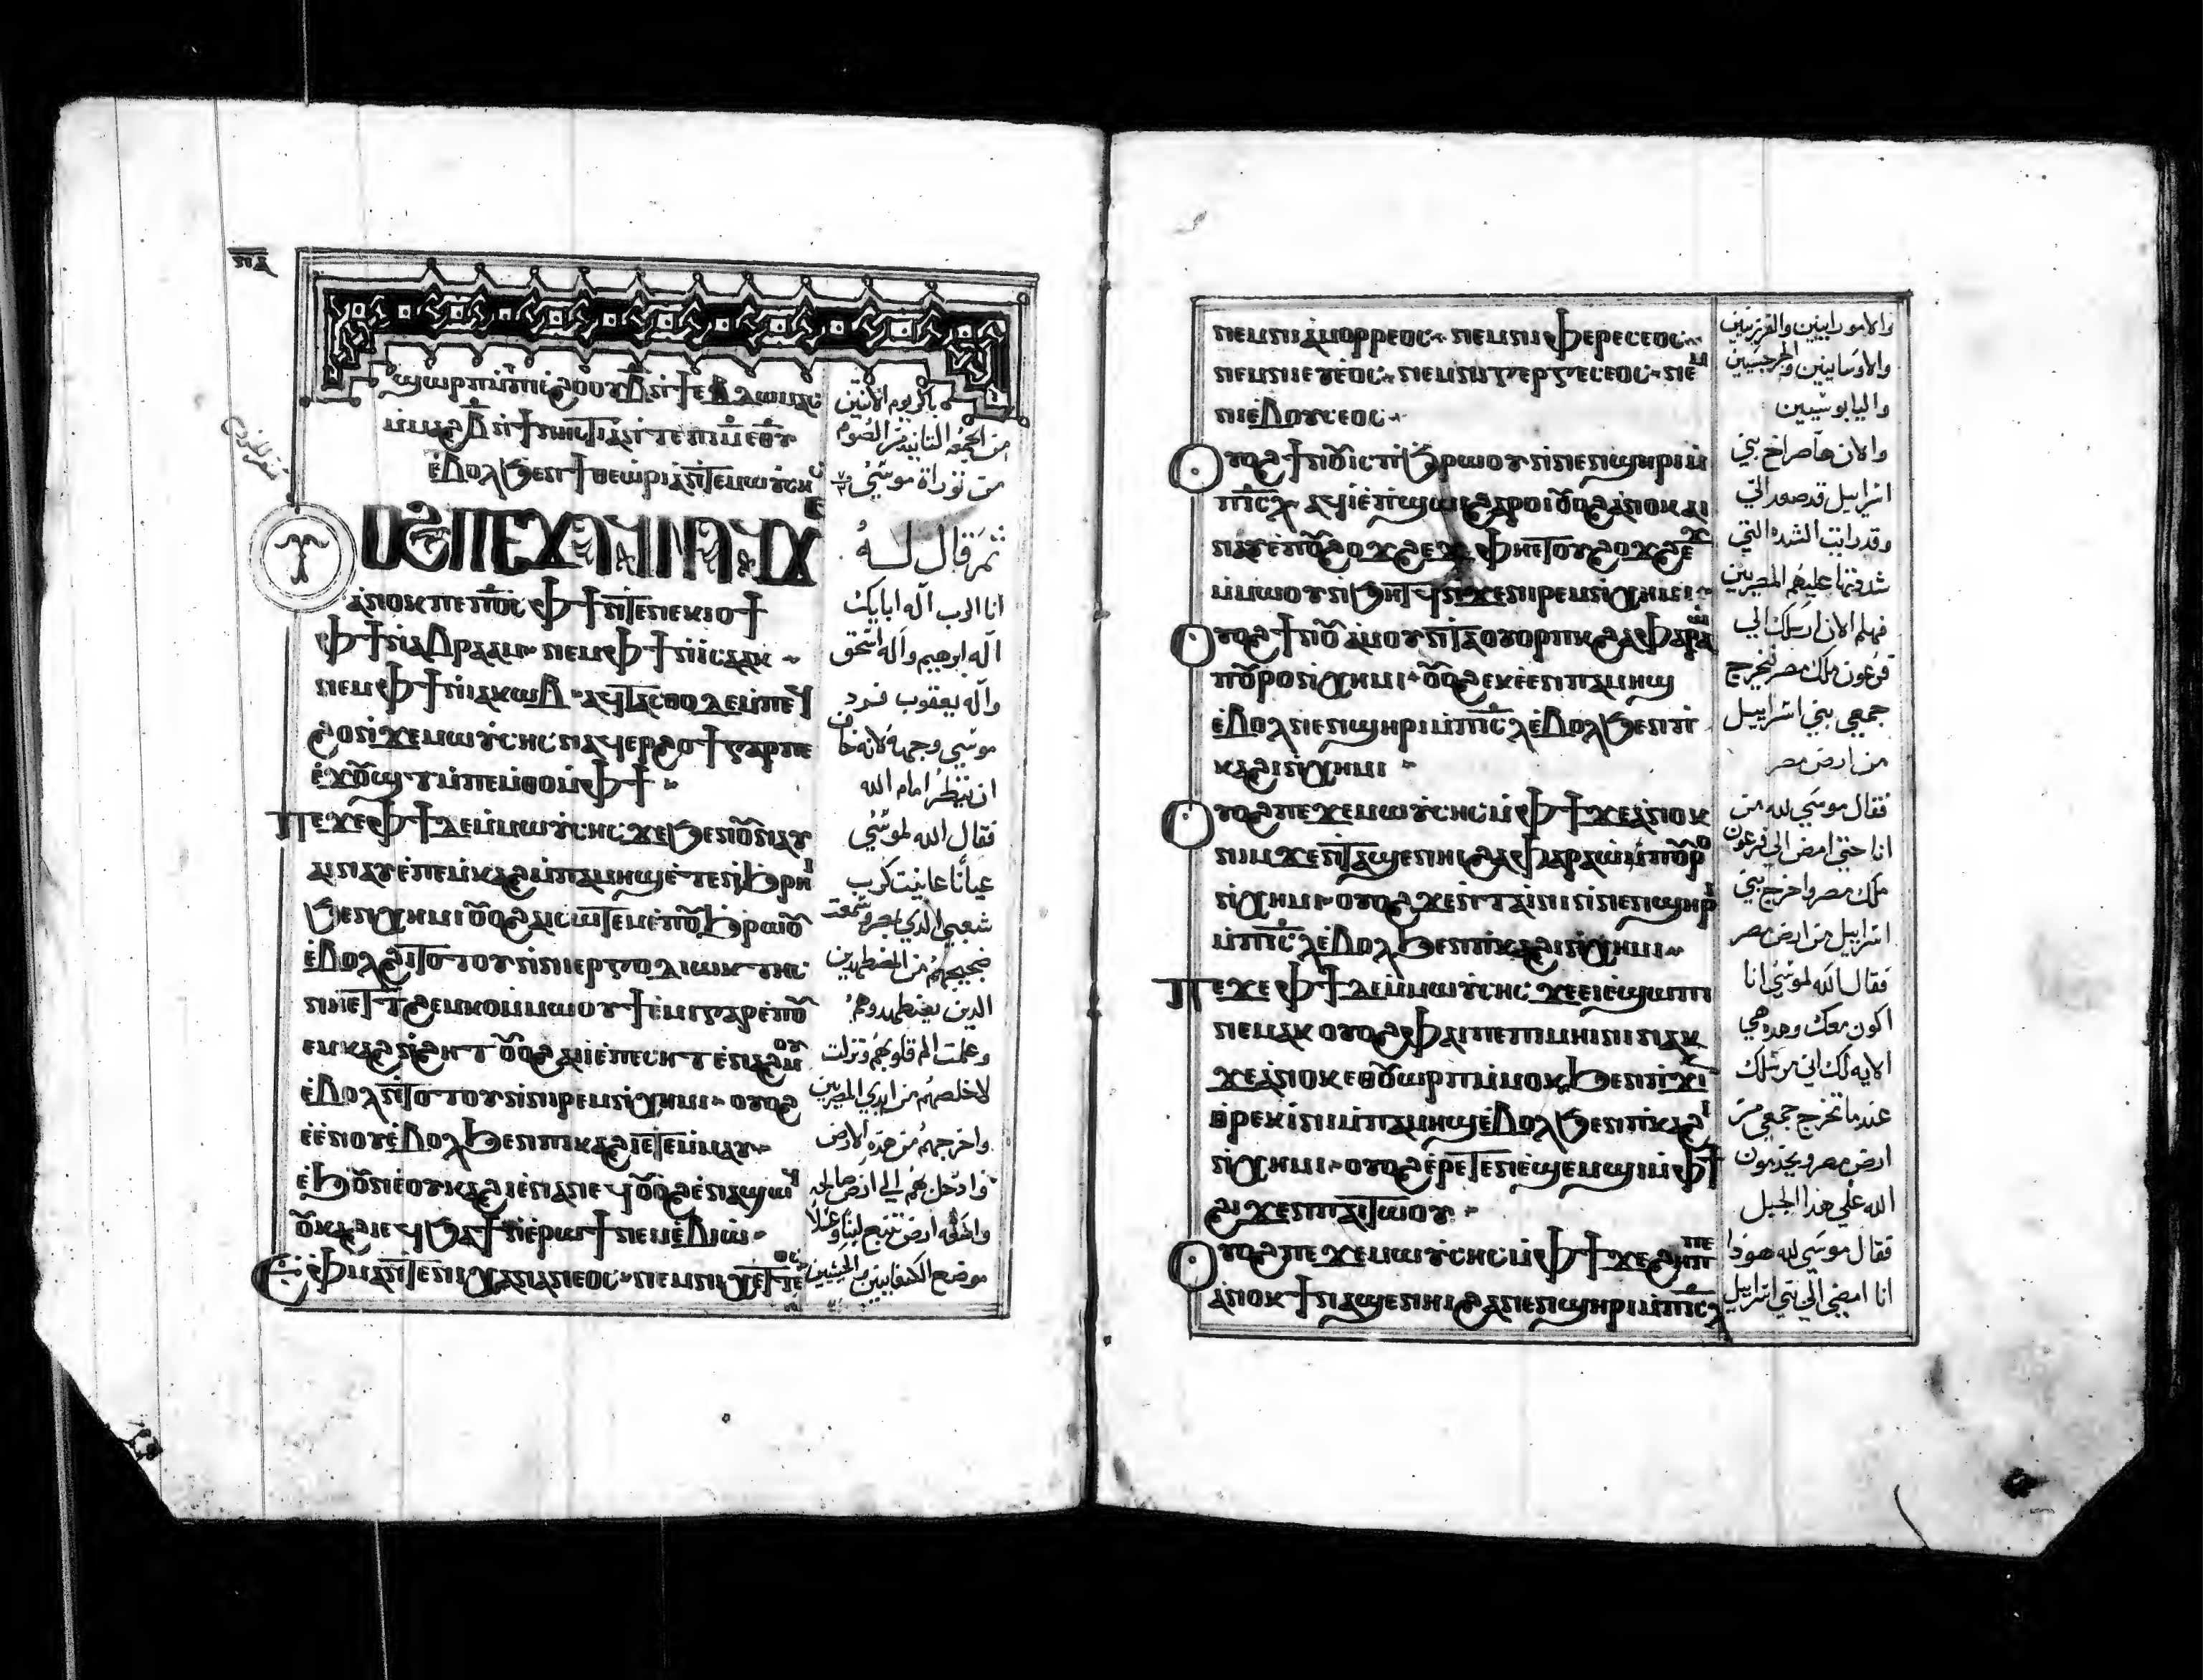 ⲡⲁ
ϣⲱⲣⲡ ⲙⲡⲓⲥⲛⲟⲩ ⲇⲛϯⲉⲃⲇⲱⲙⲁⲥ
ⲙⲙⲁϩⲃ̄ ⲛϯⲛⲏⲥⲧⲓⲁ ⲛⲧⲉ ⲡⲓⲙ ⲉⲑⲩ
ⲉⲃⲟⲗϧⲉⲛ ϯⲑⲉⲱⲣⲓⲁ ⲛⲧⲉ ⲙⲱⲩⲥⲏⲥ
ⲟⲩⲟϩ ⲡⲉϫⲁϥ ⲛⲁϥ ϫⲉ
ⲁⲛⲟⲕ ⲡⲉ ⲡϭⲟⲓⲥ ⲫϯ ⲛⲧⲉ ⲛⲉⲕⲓⲟϯ
ⲫϯ ⲛⲁⲃⲣⲁⲁⲙ ⲛⲉⲙ ⲫϯ ⲛⲓⲥⲁⲁⲕ
ⲛⲉⲙ ⲫϯ ⲛⲓⲁⲕⲱⲃ ⲁϥⲧⲁⲥⲑⲟ ⲇⲉ ⲙⲡⲉϥ
ϩⲟ ⲛϫⲉ ⲙⲱⲩⲥⲏⲥ ⲛⲁϥⲉⲣϩⲟϯ ⲅⲁⲣ ⲡⲉ
ⲉϫⲟⲩϣⲧ ⲙⲡⲉⲙⲑⲟ ⲙⲫϯ
ⲡⲉϫⲉ ⲫϯ ⲇⲉ ⲙⲙⲱⲩⲥⲏⲥ ϫⲉ ϧⲉⲛ ⲟⲩⲛⲁⲩ
ⲁⲓⲛⲁⲩ ⲉⲡⲉⲙⲕⲁϩ ⲙⲡⲁⲙⲏϣ ⲉⲧⲉ ⲛϧⲣⲏⲓ
ϧⲉⲛ ⲭⲏⲙⲓ ⲟⲩⲟϩ ⲁⲓⲥⲱⲧⲉⲙ ⲉⲡⲟⲩϧⲣⲱⲟⲩ
ⲉⲃⲟⲗϩⲓⲧⲟⲧⲟⲩ ⲛⲛⲓⲉⲣⲅⲟⲇⲓⲱⲕⲧⲏⲥ
ⲛⲏⲉⲧⲧϩⲉⲙⲕⲟ ⲙⲙⲱⲟⲩ ϯⲉⲙⲓ ⲅⲁⲣ ⲉⲡⲟⲩ
ⲉⲙⲕⲁϩ ⲛϩⲏⲧ ⲟⲩⲟϩ ⲁⲓⲓ ⲉⲡⲉⲥⲏⲧ ⲉⲛⲁϩⲙⲟⲩ
ⲉⲃⲟⲗϩⲓⲧⲟⲧⲟⲩ ⲛⲛⲓⲣⲉⲙⲛⲭⲏⲙⲓ ⲟⲩⲟϩ
ⲉⲉⲛⲟⲩ ⲉⲃⲟⲗϧⲉⲛ ⲡⲓⲕⲁϩⲓ ⲉⲧⲉⲙⲙⲁⲩ
ⲉϧⲟⲩⲛ ⲉⲟⲩⲕⲁϩⲓ ⲉⲛⲁⲛⲉϥ ⲟⲩⲟϩ ⲉⲛⲁϣⲱϥ
ⲟⲩⲕⲁϩⲓ ⲉϥϧⲁϯ ⲛⲉⲣⲱϯ ⲛⲉⲙ ⲉⲃⲓⲱ
ⲉⲫⲙⲁ ⲛⲧⲉ ⲛⲓⲭⲁⲛⲁⲛⲉⲟⲥ ⲛⲉⲙ ⲛⲓⲭⲉⲧⲧⲉⲟⲥ
باكر يوم الاثنين
من الجمعه الثانيه من الصوم
من توراة موسي
ثم قال له
انا الرب اله ابايك
اله ابرهيم واله اسحق
واله يعقوب فرد
موسي وجهه لانه خاف
ان ينظر امام الله
فقال الله لموسي
عيانا عاينت كرب
شعبي الذي بمصر وسمعت
ضجيجهم من المضطهدين
الذين يضطهدوهم
وعلمت الم قلوبهم ونزلت
لاخلصهم من ايدي المصريين
واخرجهم من هذه الارض
وادخل بهم الي ارض صالحه
ارض تنبع لبنا وعسلا
موضع الكنعانيين مع الحيثيين
ⲛⲉⲙ ⲛⲓⲁⲙⲟⲣⲣⲉⲟⲥ ⲛⲉⲙ ⲛⲓⲫⲉⲣⲉⲥⲉⲟⲥ
ⲛⲉⲙ ⲛⲓⲉⲩⲉⲟⲥ ⲛⲉⲙ ⲛⲓⲅⲉⲣⲅⲉⲥⲉⲟⲥ ⲛⲉⲙ
ⲛⲓⲉⲃⲟⲩⲥⲉⲟⲥ
ⲟⲩⲟϩ ϯⲛⲟⲩ ⲓⲥ ⲡϧⲣⲱⲟⲩ ⲛⲛⲉⲛϣⲏⲣⲓ ⲙ
ⲡⲓⲥⲗ ⲁϥⲓ ⲉⲡϣⲱⲓ ϩⲁⲣⲟⲓ ⲟⲩⲟϩ ⲁⲛⲟⲕ ⲁⲓ
ⲛⲁⲩ ⲉⲡⲟⲩϩⲟϫϩⲉϫ ⲫⲏⲉⲧⲟⲩϩⲟϫϩⲉϫ
ⲙⲙⲱⲟⲩ ⲛϧⲏⲧϥ ⲛϫⲉ ⲛⲓⲣⲉⲙⲛⲭⲏⲙⲓ
ⲟⲩⲟϩ ϯⲛⲟⲩ ⲁⲙⲟⲩ ⲛⲧⲁⲟⲩⲟⲣⲡⲕ ϩⲁ ⲫⲁⲣⲁⲱ
ⲡⲟⲩⲣⲟ ⲛⲭⲏⲙⲓ ⲟⲩⲟϩ ⲉⲕⲉⲉⲛ ⲡⲁⲙⲏϣ
ⲉⲃⲟⲗ ⲛⲉⲛϣⲏⲣⲓ ⲙⲡⲓⲥⲗ ⲉⲃⲟⲗϧⲉⲛ ⲡ
ⲕⲁϩⲓ ⲛⲭⲏⲙⲓ
ⲟⲩⲟϩ ⲡⲉϫⲉ ⲙⲱⲩⲥⲏⲥ ⲙⲫϯ ϫⲉ ⲁⲛⲟⲕ
ⲛⲓⲙ ϫⲉ ⲛⲧⲁϣⲉⲛⲏⲓ ϩⲁ ⲫⲁⲣⲁⲱ ⲡⲟⲩⲣⲟ
ⲛⲭⲏⲙⲓ ⲟⲩⲟϩ ϫⲉ ⲛⲧⲁⲓⲛⲓ ⲛⲛⲉⲛϣⲏⲣⲓ
ⲙⲡⲓⲥⲗ ⲉⲃⲟⲗϧⲉⲛ ⲡⲕⲁϩⲓ ⲛⲭⲏⲙⲓ
ⲡⲉϫⲉ ⲫϯ ⲇⲉ ⲙⲙⲱⲩⲥⲏⲥ ϫⲉ ⲉⲓⲉϣⲱⲡⲓ
ⲛⲉⲙⲁⲕ ⲟⲩⲟϩ ⲫⲁⲓ ⲡⲉ ⲡⲓⲙⲏⲓⲛⲓ ⲛⲁⲕ
ϫⲉ ⲁⲛⲟⲕ ⲉⲑⲟⲩⲱⲣⲡ ⲙⲙⲟⲕ ϧⲉⲛ ⲡϫⲓⲛ
ⲑⲣⲉⲕⲓⲛⲓ ⲙⲡⲁⲙⲏϣ ⲉⲃⲟⲗϧⲉⲛ ⲡⲕⲁϩⲓ
ⲛⲭⲏⲙⲓ ⲟⲩⲟϩ ⲉⲣⲉⲧⲉⲛⲉϣⲉⲙϣⲓ ⲙⲫϯ
ϩⲓϫⲉⲛ ⲡⲁⲓⲧⲱⲟⲩ
ⲟⲩⲟϩ ⲡⲉϫⲉ ⲙⲱⲩⲥⲏⲥ ⲙⲫϯ ϫⲉ ϩⲏⲡⲡⲉ
ⲁⲛⲟⲕ ϯⲛⲁϣⲉⲛⲏⲓ ϩⲁ ⲛⲉⲛϣⲏⲣⲓ ⲙⲡⲓⲥⲗ
والامورانيين والفرزيين
والاوسانيين والجرجسيين
واليابوسيين
والان ها صراخ بني
اسراييل قد صعد الي
وقد رايت الشده التي
شدفتها عليهم المصريين
فهلم الان ارسلك الي
فرعون ملك مصر لتخرج
جمعي بني اسراييل
من ارض مصر
فقال موسي لله من
انا حتي امضي الي فرعون
ملك مصر واخرج بني
اسراييل من ارض مصر
فقال الله لموسي انا
اكون معك وهذه هي
الايه لك اني مرسلك
عندما تخرج جمعي من
ارض مصر ويخدمون
الله علي هذا الجبل
فقال موسي لله هوذا
انا امضي الي بني اسراييل